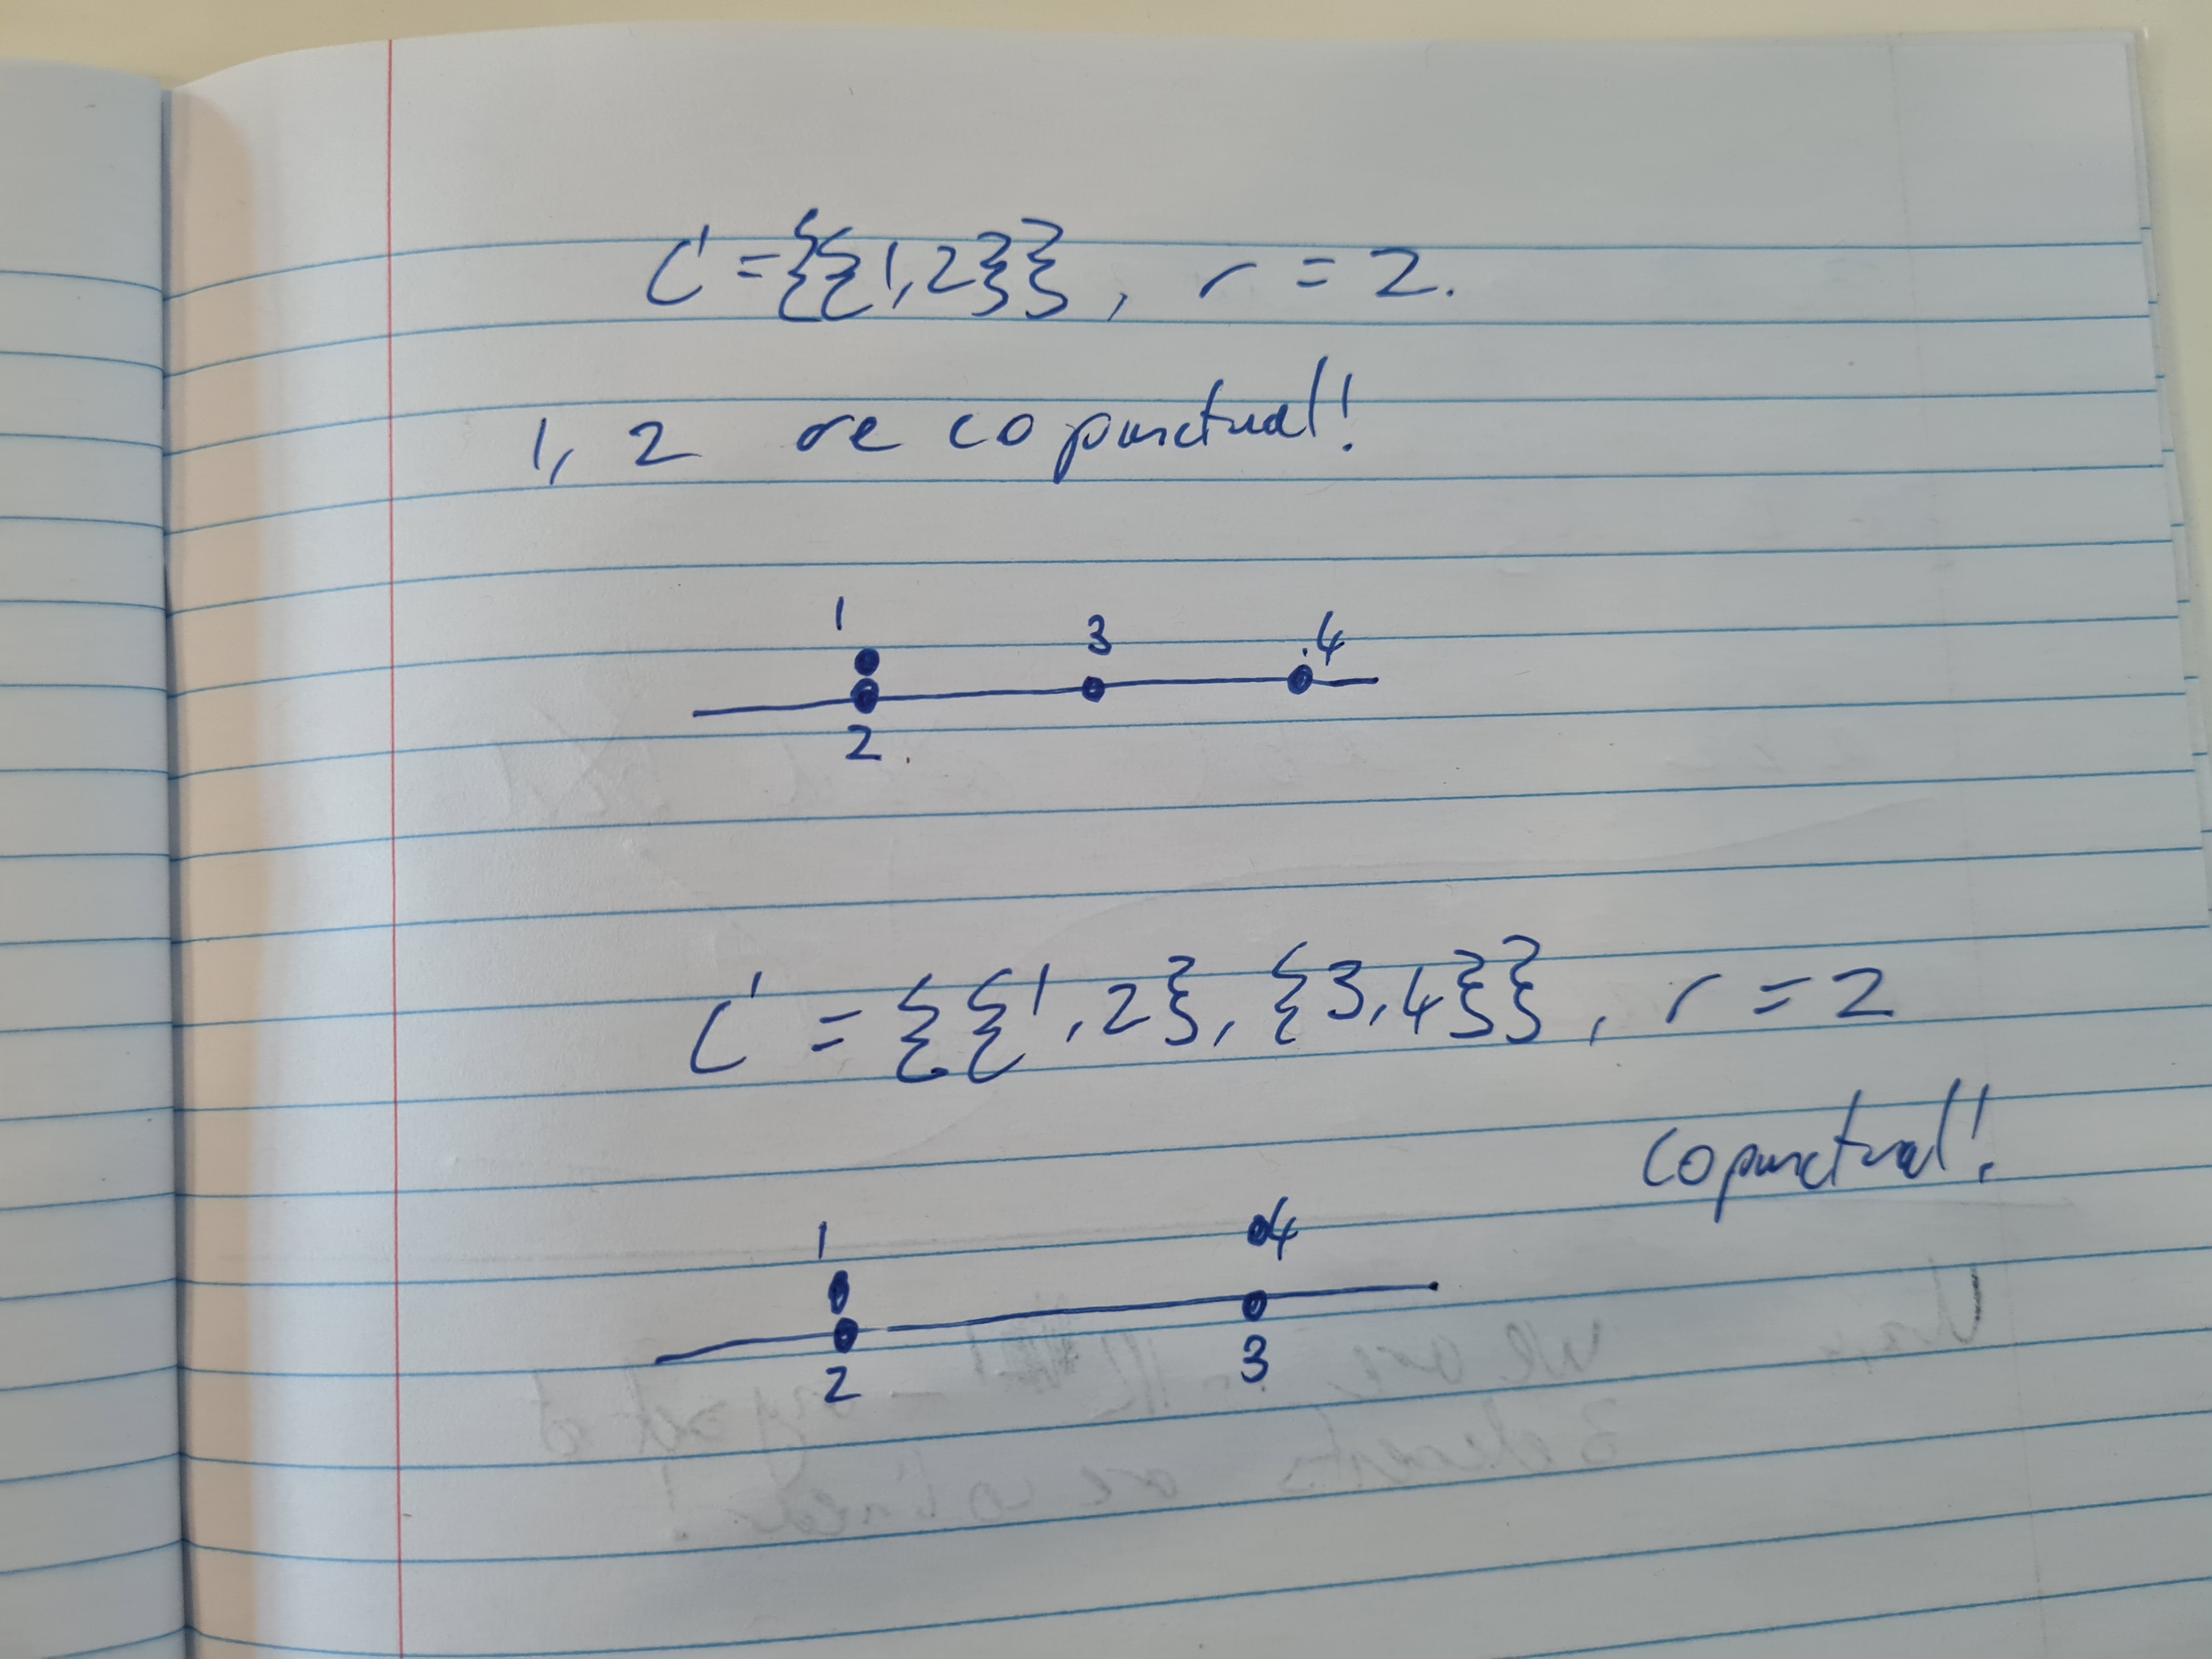 C' = {{1,2}}, r = 2.
1, 2 are copunctual!
1 3 4
2
C' = {{1,2}, {3,4}}, r = 2
copunctual!
4
1
3
2